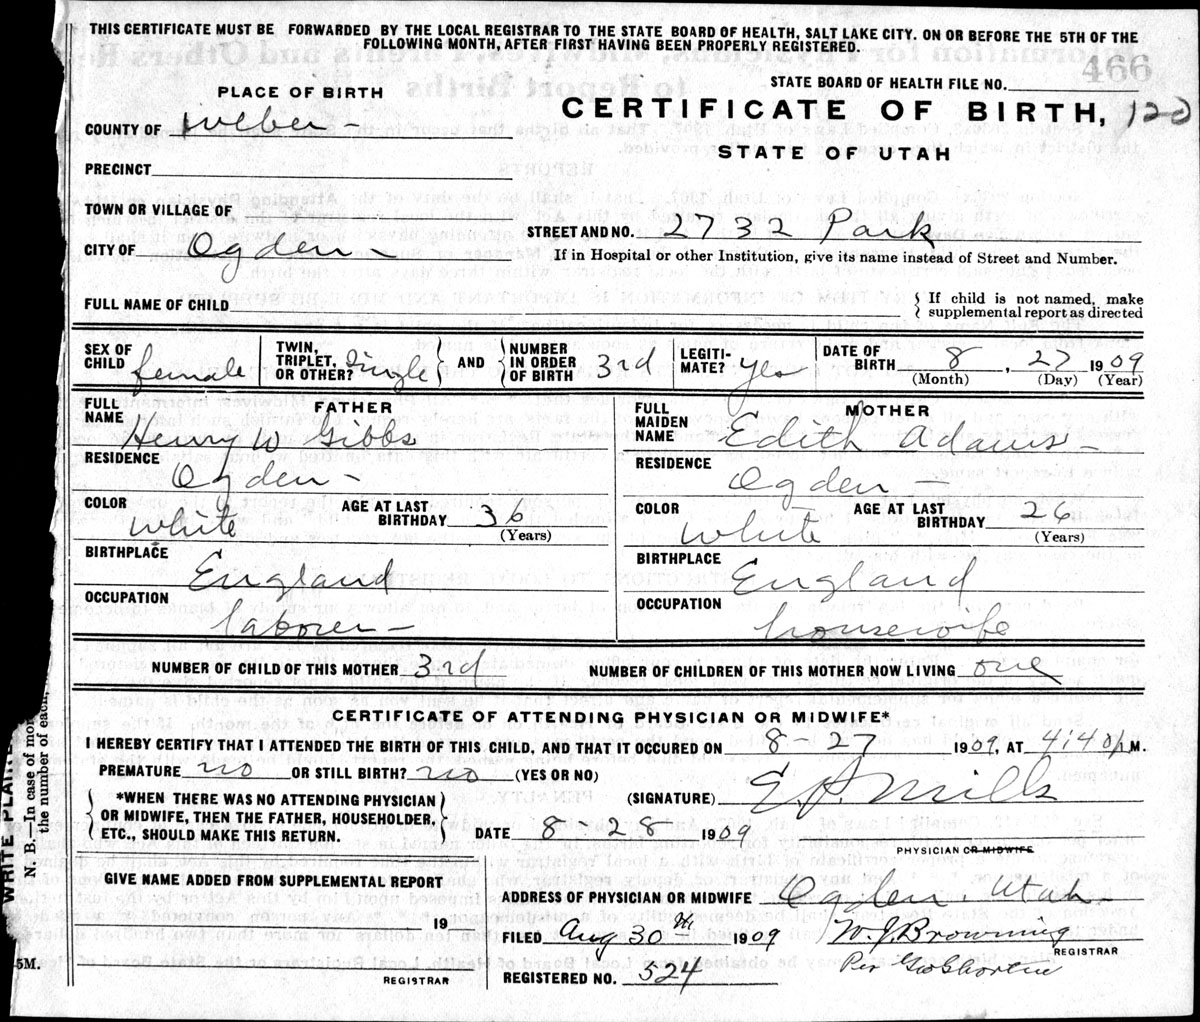 THIS CERTIFICATE MUST BE FORWARDED BY THE LOCAL REGISTRAR TO THE STATE BOARD OF HEALTH, SALT LAKE CITY. ON OR BEFORE THE 5TH OF THE
FOLLOWING MONTH, AFTER FIRST HAVING BEEN PROPERLY REGISTERED.
466
STATE BOARD OF HEALTH FILE NO.
PLACE OF BIRTH
CERTIFICATE OF BIRTH, 120
COUNTY OF Weber
STATE OF UTAH
PRECINCT
TOWN OR VILLAGE OF
STREET AND NO. 2732 Park
CITY OF Ogden
If in Hospital or other Institution, give its name instead of Street and Number.
FULL NAME OF CHILD
If child is not named, make
supplemental report as directed
SEX OF CHILD female
TWIN, TRIPLET, OR OTHER? Single
AND
NUMBER IN ORDER OF BIRTH 3rd
LEGITI-MATE? yes
DATE OF BIRTH 8, 27 1909
(Month) (Day) (Year)
FATHER
FULL NAME Henry W Gibbs
RESIDENCE Ogden
COLOR White
AGE AT LAST BIRTHDAY 36
(Years)
BIRTHPLACE England
OCCUPATION laborer
MOTHER
FULL MAIDEN NAME Edith Adams
RESIDENCE Ogden
COLOR White
AGE AT LAST BIRTHDAY 26
(Years)
BIRTHPLACE England
OCCUPATION housewife
NUMBER OF CHILD OF THIS MOTHER 3rd NUMBER OF CHILDREN OF THIS MOTHER NOW LIVING one
CERTIFICATE OF ATTENDING PHYSICIAN OR MIDWIFE*
I HEREBY CERTIFY THAT I ATTENDED THE BIRTH OF THIS CHILD, AND THAT IT OCCURED ON 8-27 1909, AT 4:40 P M.
PREMATURE no OR STILL BIRTH? no (YES OR NO)
*WHEN THERE WAS NO ATTENDING PHYSICIAN
OR MIDWIFE, THEN THE FATHER, HOUSEHOLDER,
ETC., SHOULD MAKE THIS RETURN.
(SIGNATURE) E. P. Mills
DATE 8-28 1909
PHYSICIAN OR MIDWIFE
GIVE NAME ADDED FROM SUPPLEMENTAL REPORT
19
REGISTRAR
ADDRESS OF PHYSICIAN OR MIDWIFE Ogden, Utah.
FILED Aug 30 1909 W. J. Browning
REGISTRAR
REGISTERED NO. 524
Per
WRITE PLAINL
N. B.—In case of mor
the number of each,
5M.